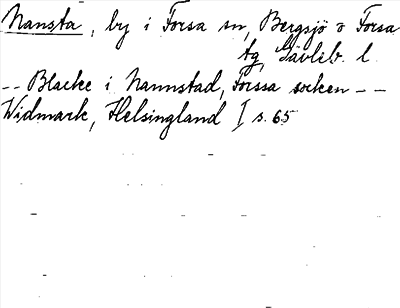 Nansta, by i Forsa sn, Bergsjö o Forsa
tg, Gävleb. l.
-- Blacke i Nannstad, Forssa socken --
Widmark, Helsingland I s. 65